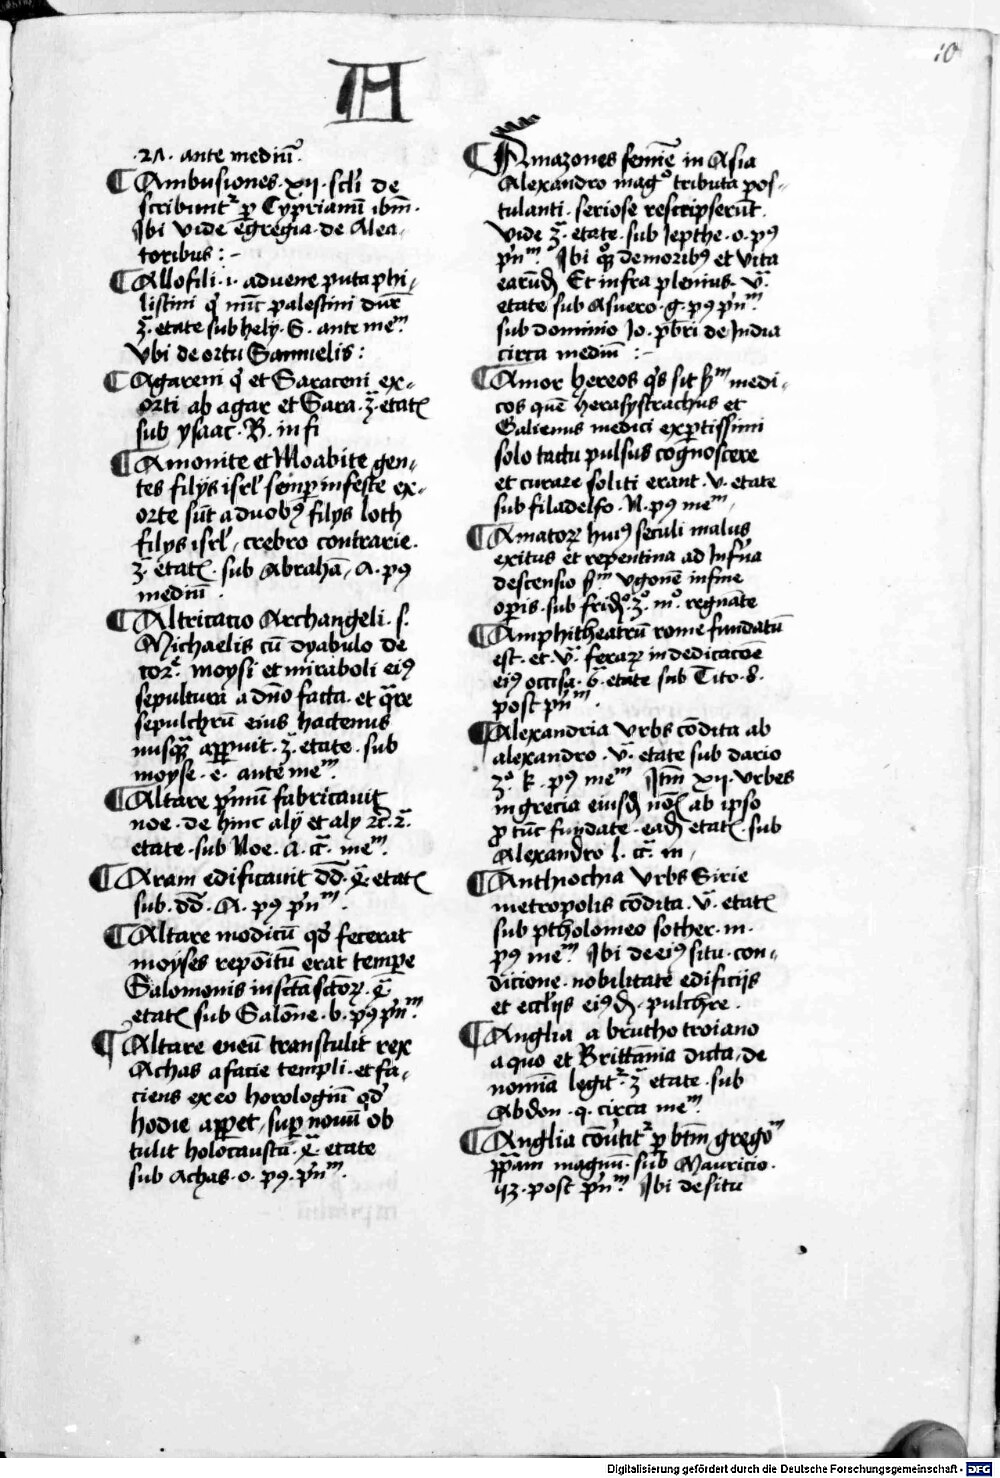 10
A
.21. ante mediū.
Ambusiones .xij. scłi de
scribunt᷑ ꝑ Cyprianū ibm̄.
Ibi vide egregia de Alea-
toribus :-
Allofili .i. advene puta phi-
listini q̇ nūc palestini dūr
3ͣ. etate sub hely. S. ante meᵐ.
Vbi de ortu Samuelis :
Agareni q̇ et Saraceni ex-
orti ab agar et Sara. 3ͣ. etatꝭ
sub ysaac. B. in fi
Amonite et Moabite gen-
tes filijs isrł semꝑ infeste ex-
orte sūt a duobꝫ filijs loth
filijs isrł, crebro contrarie.
3ͣ. etatꝭ. sub Abrahā, A. pꝰ
mediū.
Altricatio Archangeli. s.
Michaelis cū dyabulo de
corꝑe. moysi et mirabili eiꝰ
sepultura a dño facta. et q̄re
sepulchrū eius hactenus
nusqꝫ apparuit. 3ͣ. etate. sub
moyse. e. ante meᵐ.
Altare p̄mū fabricavit
noe. de hinc alij et alij ꝛc. 2ͣ.
etate. sub Noe. A. cͣ. meᵐ.
Aram edificavit dd̄. 4ͣ etatꝭ
sub. dd̄. A. pꝰ p̄nᵐ.
Altare modicū qd̄ fecerat
moyses reponitū erat tempe
Salomonis in sctā sctōrꝝ. 4ͣ
etatꝭ sub Salōne. b. pꝰ p̄nᵐ.
Altare eneū transtulit rex
Achas a facie templi. et fa-
ciens ex eo horologiū qd̄
hodie apparet, sup nouū ob
tulit holocausta. 4ͣ etate
sub Achas. o. pꝰ. p̄nᵐ.
Amazones femīe in Asia
Alexandro mag° tributa pos-
tulanti. seriose rescripserūt.
Vide 3ͣ. etate. sub Iepthe. o. pꝰ
p̄nᵐ. Ibi qꝫ de moribꝰ et vita
earūdꝫ Et infra plenius. vͣ.
etate sub Asuero. g. pꝰ p̄nᵐ.
sub dominio Io. p̄bri de India
circa mediū :-
Amor hereos q̇s sit sᵐ medi-
cos quē herasystrachus et
Galienus medici exꝑtissimi
solo tactu pulsus cognoscere
et curare soliti erant. v. etate
sub filadelfo. N. pꝰ meᵐ,
Amatorꝝ huiꝰ seculi malus
exitus et repentina ad Inf̄na
descensio sᵐ vgonē in fine
opis. sub frid°. 3°. m°. regnāte
Amphitheatrū rome fundatū
est. et. vͣ. ferarꝝ in dedicacōe
eiꝰ occisa. 6ͣ. etate sub Tito. 8.
post p̄nᵐ.
Alexandria vrbs cōdita ab
alexandro. vͣ. etate sub dario
3°. k. pꝰ meᵐ Itm̄ xij. vrbes
in grecia eiusdꝫ noīs ab ipso
ꝓ tūc fundate. eadꝫ etatꝭ. sub
Alexandro l. cͣ. m,
Anthiochia vrbs Sirie
metropolis cōdita. vͣ. etatꝭ
sub ptholomeo sother. m.
pꝰ meᵐ. Ibi de eiꝰ situ. con-
dicione. nobilitate edificijs
et ecclijs eiꝰdꝫ. pulchre.
Anglia a brutho troiano
a quo et Brittania dicta, de
nomīa legit᷑. 3ͣ etate. sub
Abdon. q. circa meᵐ.
Anglia cōv̄tit᷑ ꝑ btm̄ gregoᵐ
ppam magnū. sub Mauricio.
post p̄nᵐ. Ibi de situ
Digitalisierung gefördert durch die Deutsche Forschungsgemeinschaft - DFG